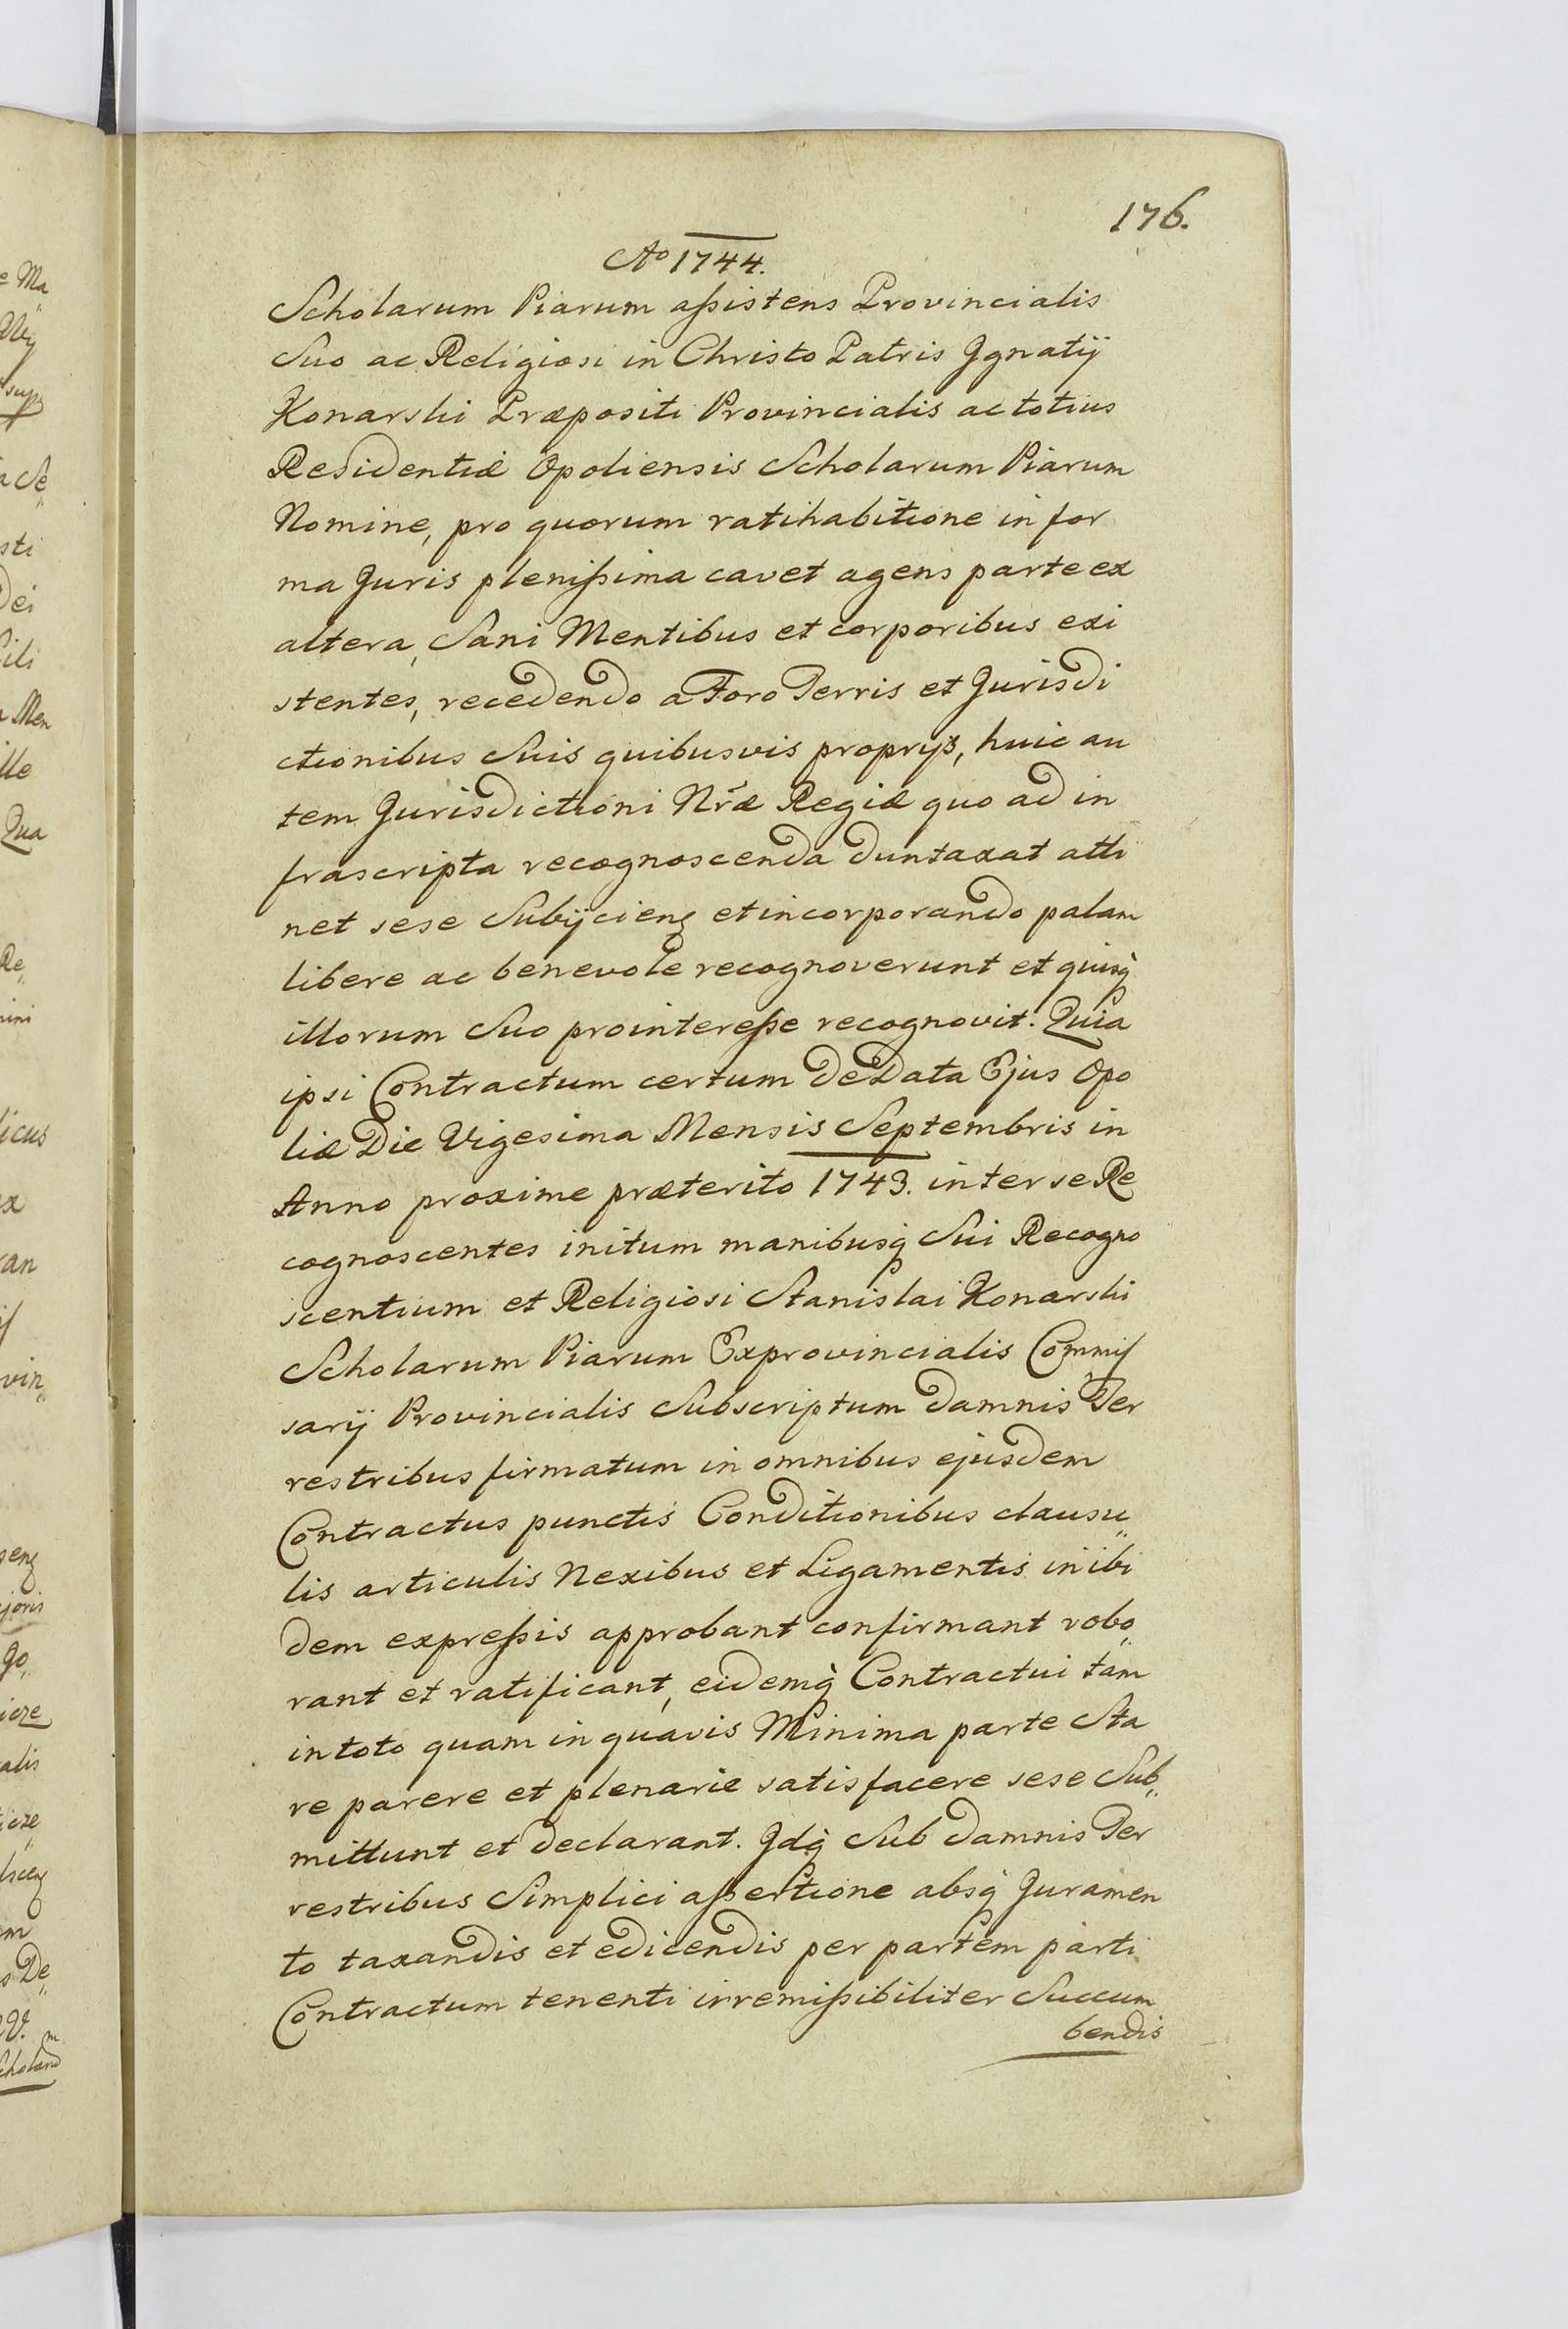 176.
Aº 1744.
Scholarum Piarum assistens Provincialis
Suo ac Religiosi in Christo Patris Ignatij
Konarski Præpositi Provincialis ac totius
Residentiæ Opoliensis Scholarum Piarum
Nomine, pro quorum ratihabitione in for
ma Juris plenissima cavet agens parte ex
altera, Sani Mentibus et corporibus exi
stentes, recedendo a Foro Terris et Jurisdi
ctionibus Suis quibusvis proprijs, huic au
tem Jurisdictioni Nræ Regiæ quo ad in
frascripta recognoscenda duntaxat atti
net sese Subijcienꝫ et incorporando palam
libere ac benevole recognoverunt et quisq̀
illorum Suo prointeresse recognovit. Quia
ipsi Contractum certum de Data Ejus Opo
liæ Die Vigesima Mensis Septembris in
Anno proxime præterito 1743. inter se Re
cognoscentes initum manibusq̀ Sui Recogno
scentium et Religiosi Stanislai Konarski
Scholarum Piarum Exprovincialis Commis
sarij Provincialis Subscriptum damnis Ter
restribus firmatum in omnibus ejusdem
Contractus punctis Conditionibus clausu„
lis articulis Nexibus et Ligamentis in ibi
dem expressis approbant confirmant robo„
rant et ratificant, eidemq̀ Contractui tam
in toto quam in quavis Minima parte Sta
re parere et plenarie satisfacere sese Sub„
mittunt et declarant. Idq̀ Sub damnis Ter
restribus Simplici assertione absq̀ Juramen
to taxandis et edicendis per partem parti
Contractum tenenti irremissibiliter Succum
bendis